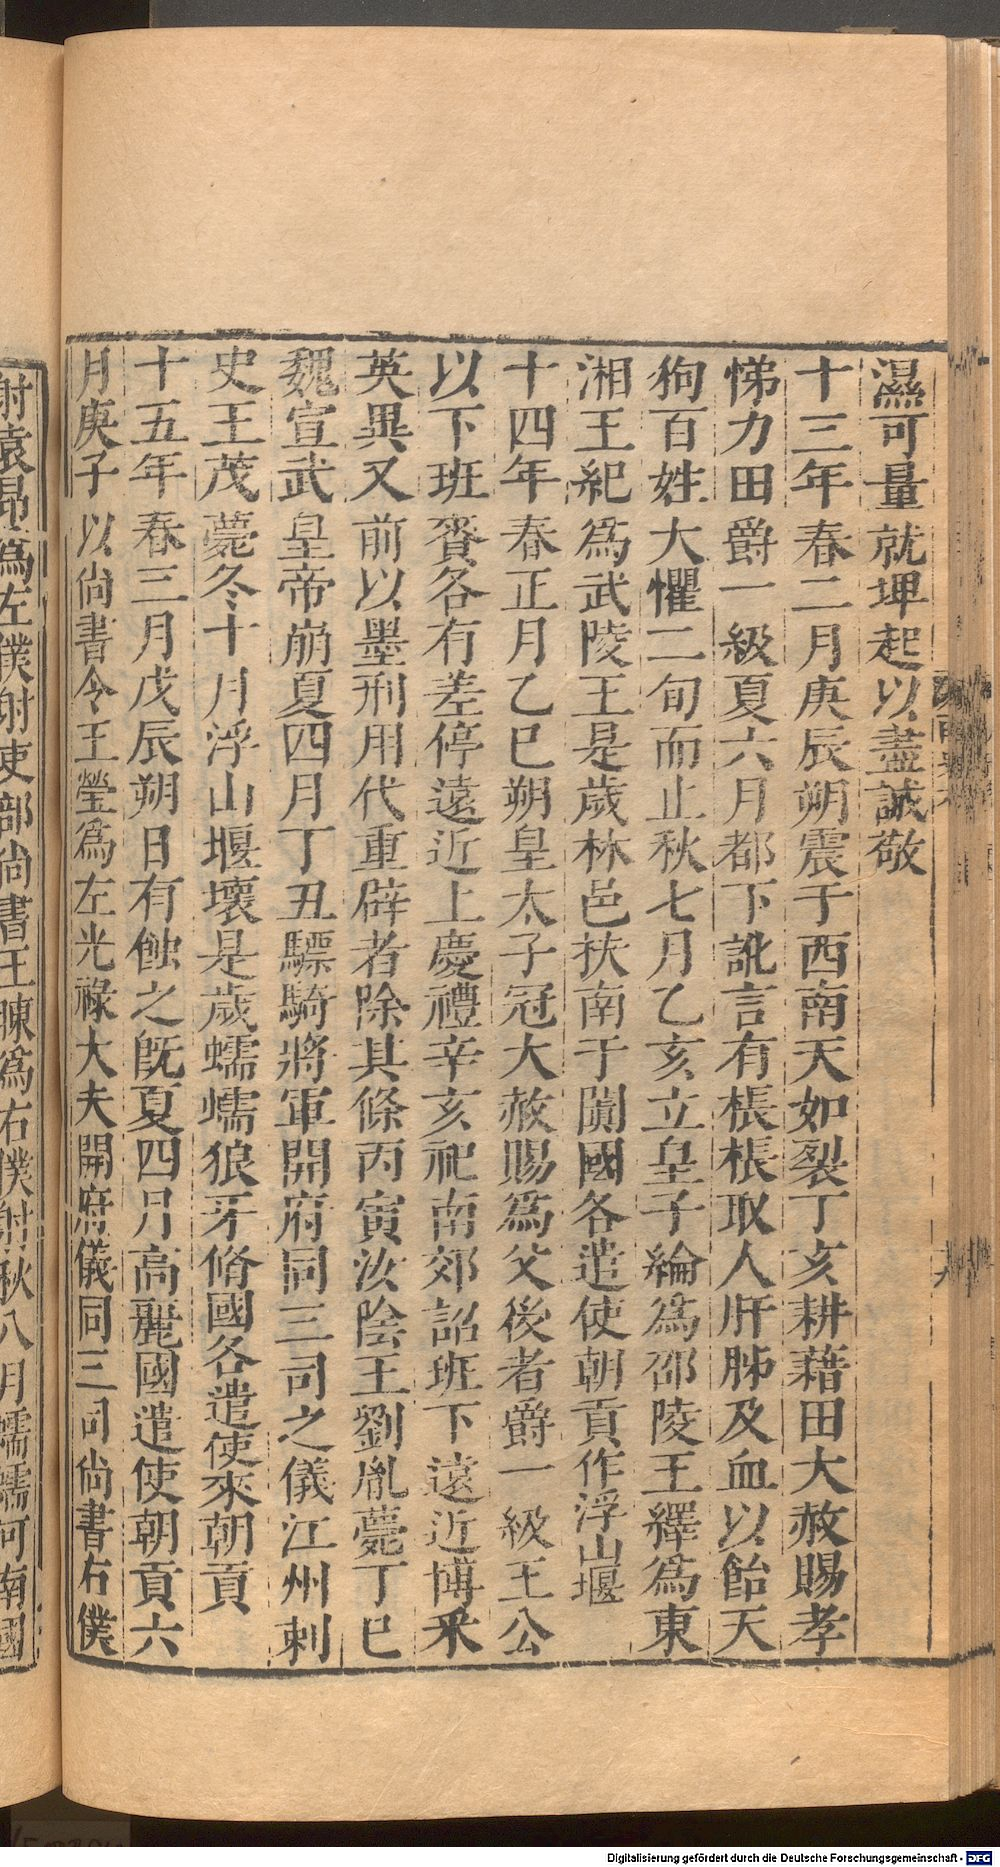 濕可量就埤起以盡誠敬
十三年春二月庚辰朔震于西南天如裂丁亥耕藉田大赦賜孝
悌力田爵一級夏六月都下訛言有棖棖取人肝肺及血以飴天
狗百姓大懼二旬而止秋七月乙亥立皇子綸爲邵陵王繹爲東
湘王紀爲武陵王是歲林邑扶南于闐國各遣使朝貢作浮山堰
十四年春正月乙巳朔皇太子冠大赦賜爲父後者爵一級王公
以下班賚各有差停遠近上慶禮辛亥祀南郊詔班下遠近博采
英異又前以墨刑用代重辟者除其條丙寅汝陰王劉胤薨丁巳
魏宣武皇帝崩夏四月丁丑驃騎將軍開府同三司之儀江州刺
史王茂薨冬十月浮山堰壞是歲蠕蠕狼牙脩國各遣使來朝貢
十五年春三月戊辰朔日有蝕之既夏四月高麗國遣使朝貢六
月庚子以尚書令王瑩爲左光祿大夫開府儀同三司尚書右僕
射袁昂爲左僕射吏部尚書王暕爲右僕射秋八月蠕蠕河南國
Digitalisierung gefördert durch die Deutsche Forschungsgemeinschaft - DFG